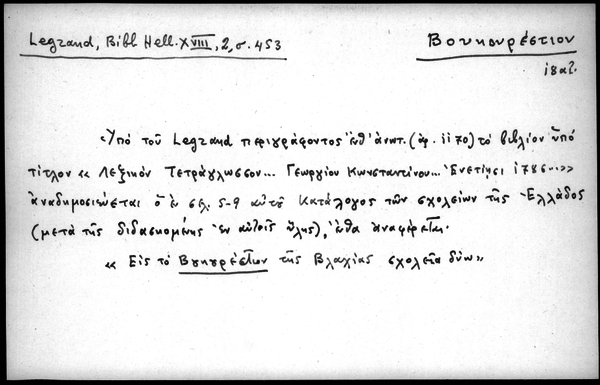 Legrand, Bibl. Hell. XVIII, 2, σ. 453
Βουκουρέστιον
ι8αζ.
Ὑπό τοῦ Legrand περιγράφοντος ἔνθ' ἀνωτ. (ἀρ. 1170) τό βιβλίον ὑπό
τίτλον « Λεξικόν Τετράγλωσσον... Γεωργίου Κωνσταντίνου... Ἐνετίῃσι 1786...»
ἀναδημοσιεύεται ὁ ἐν σελ. 5-9 αὐτοῦ Κατάλογος τῶν σχολείων τῆς Ἑλλάδος
(μετά τῆς διδασκομένης ἐν αὐτοῖς ὕλης), ἔνθα ἀναφέρεται.
« Εἰς τό Βυκυρέστιον τῆς Βλαχίας σχολεῖα δύω»